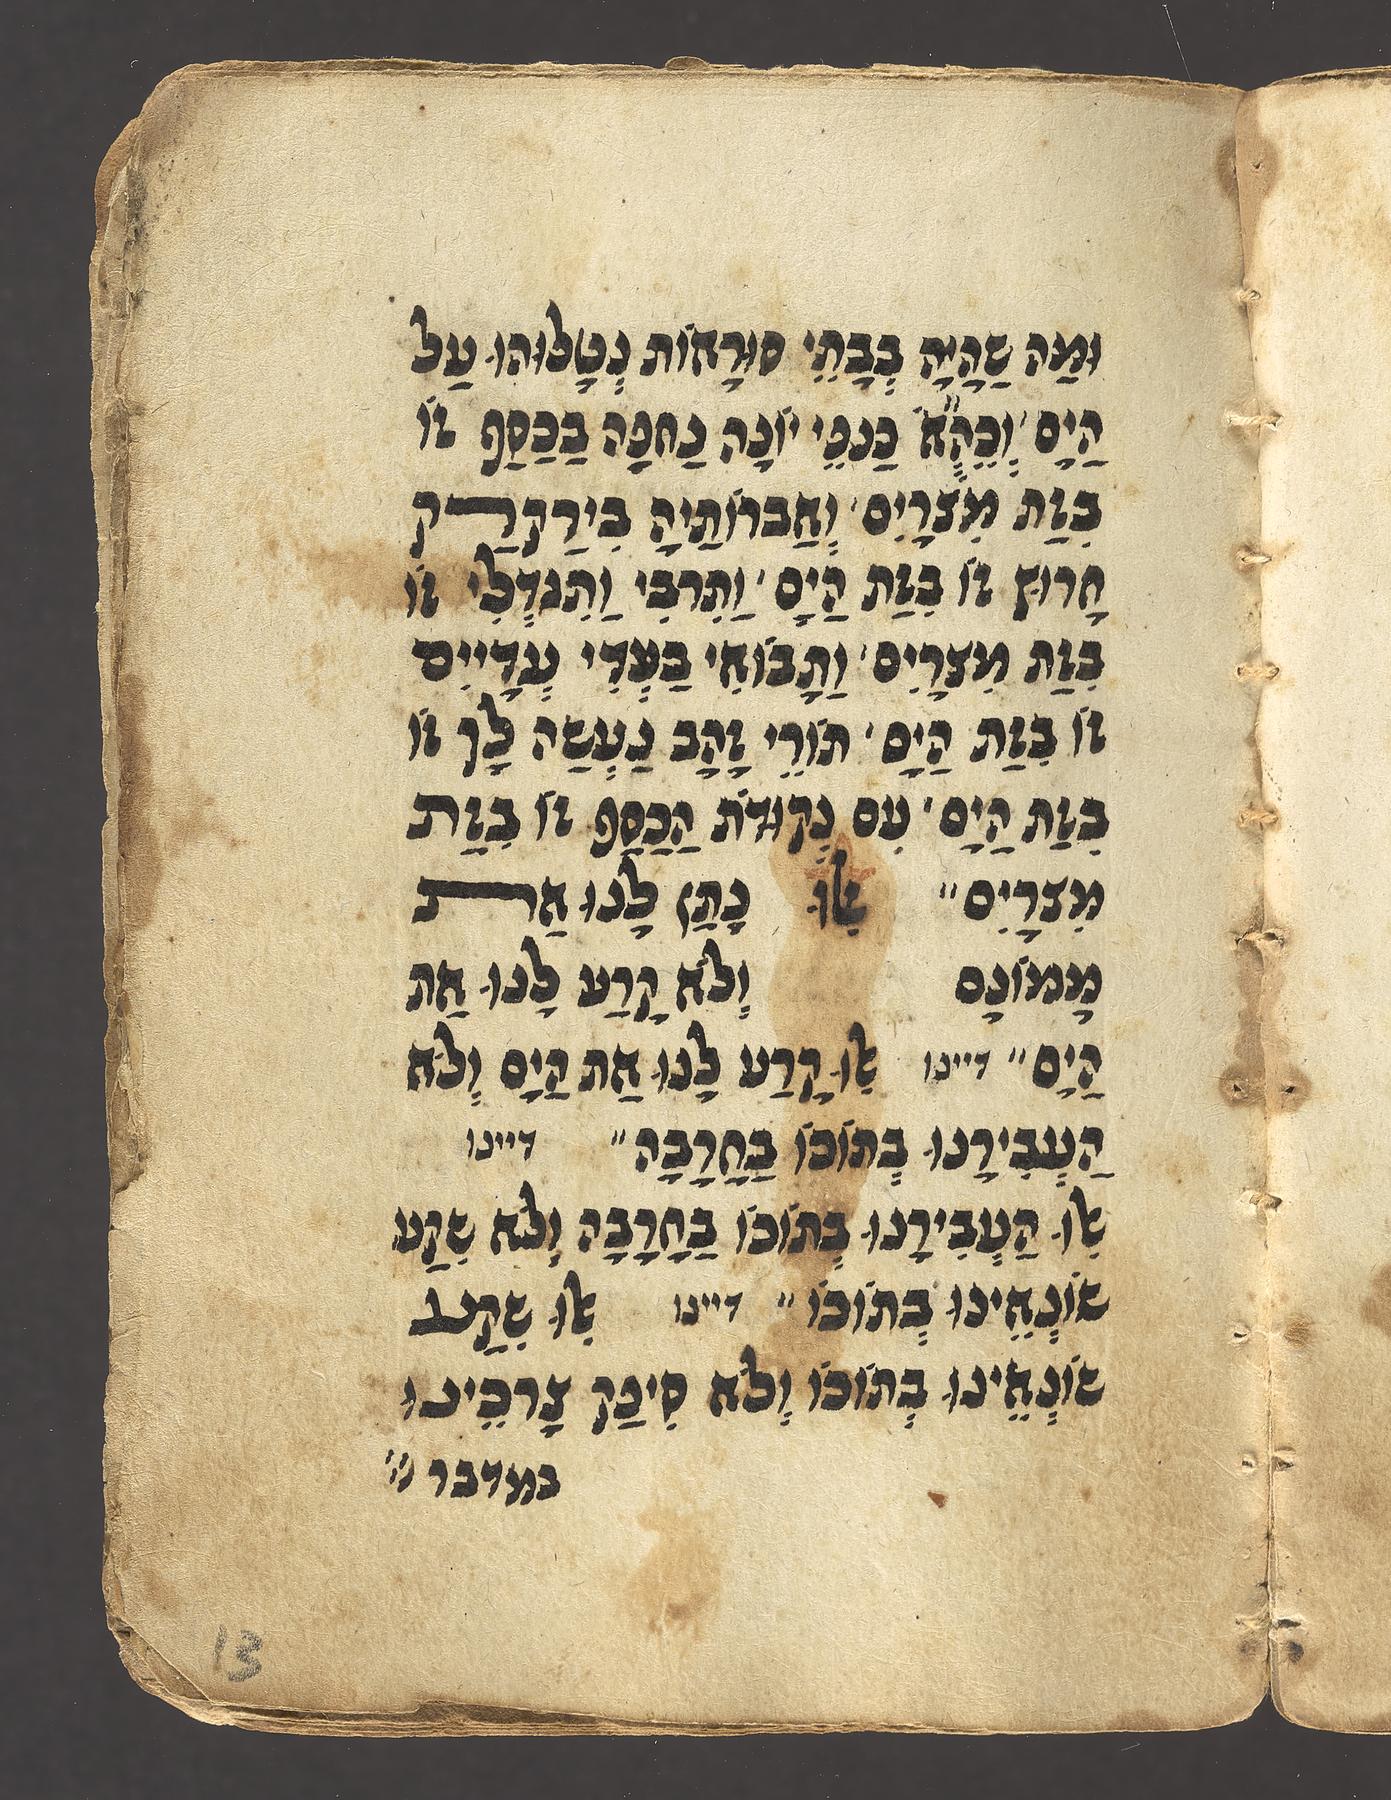 וּמַה שַהָיָה בְּבָתֵי סוּרָאוֹת נְטָלוּהוּ עַל
הַיָם׳ וְכֵהָ״אֹ כַּנפֵי יוֹנָה נַחפָה בַכַסַף זוֹ
בִּזַת מִצרָיִם׳ וְאַברוֹתַיהָ בִּירַקרַק
חָרוּץ זוֹ בִּזַת הַיָם׳ וַתִרבִּי וַתִגדְלִי זוֹ
בִּזַת מִצרָיִם׳ וַתָבוֹאִי בַּעְדִי עְדָיִים
זוֹ בִּזַת הַיָם׳ תוֹרֵי זָהָב נַעְשַה לָך זוֹ
בִּזַת הַיָם׳ עִם נְקוּדֹת הַכַּסַף זוֹ בִּזַת
מִצרָיִם״ אִלוּ נָתַן לָנוּ אַת
מָמוֹנָם וְלֹא קָרַע לָנוּ אַת
הַיָם״ דיינו אִלוּ קָרַע לָנוּ אַת הַיָם וְלֹא
הַעְבִירָנוּ בְּתוֹכוֹ בַּחָרָבָה״ דיינו
אִלוּ הַעְבִירָנוּ בְּתוֹכוֹ בַּחָרָבָה וְלֹא שִקַע
שוֹנְאֵינוּ בְּתוֹכוֹ״ דיינו אִלוּ שִקַע
שוֹנְאֵינוּ בְּתוֹכוֹ וְלֹא סִיפַק צָרכֵינוּ
במדבר ״
13